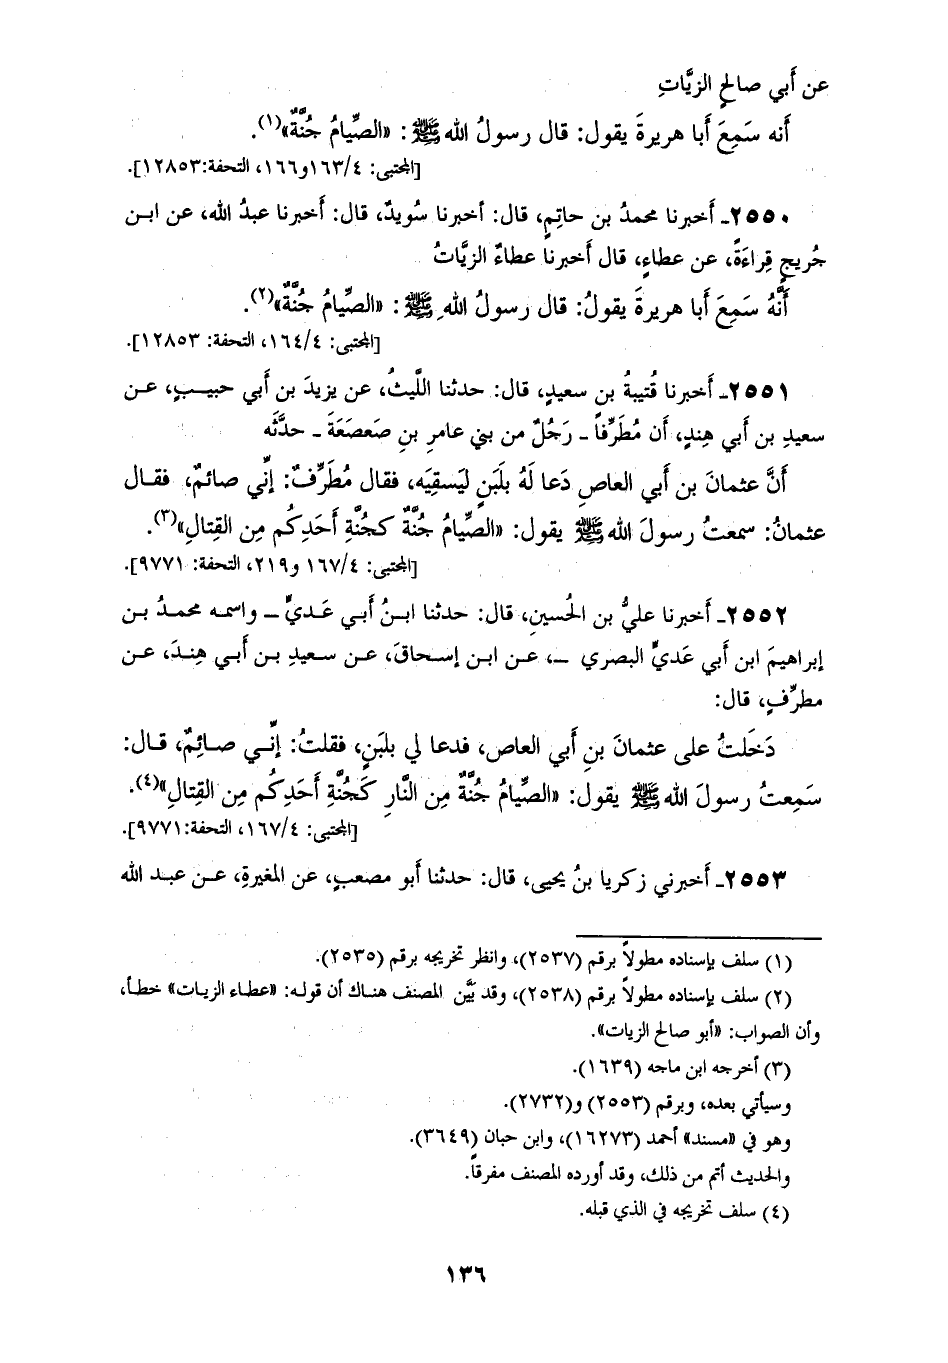 عن أَبي صالحٍ الزيَّاتِ
أنه سَمِعَ أَبا هريرةَ يقول: قال رسولُ الله ﷺ: «الصِّيامُ جُنَّةٌ»(١).
[المجتبى: ١٦٣/٤و١٦٦، التحفة:١٢٨٥٣].
٢٥٥٠ـ أَخبرنا محمدُ بن حاتمٍ، قال: أخبرنا سُويدٌ، قال: أَخبرنا عبدُ الله، عن ابن
جُريجٍ قِراءَةً، عن عطاءٍ، قال أَخبرنا عطاءٌ الزيَّاتُ
أَنَّهُ سَمِعَ أَبا هريرةَ يقولُ: قال رسولُ اللهِ ﷺ: «الصِّيامُ جُنَّةٌ»(٢).
[المجتبى: ١٦٤/٤، التحفة: ١٢٨٥٣].
٢٥٥١ـ أَخبرنا قُتيبةُ بن سعيدٍ، قال: حدثنا اللَّيثُ، عن يزيدَ بن أَبي حبيبٍ، عن
سعيدِ بن أَبي هِندٍ، أَن مُطَرِّفاً ـ رَجُلٌ من بني عامرِ بنِ صَعصَعَةَ ـ حدَّثَه
أَنَّ عثمانَ بن أَبي العاصِ دَعا لَهُ بلَبَنٍ ليَسقِيَه، فقال مُطَرِّفٌ: إنِّي صائمٌ، فقال
عثمانُ: سمعتُ رسولَ الله ﷺ يقول: «الصِّيامُ جُنَّةٌ كجُنَّةِ أَحَدِكُم مِن القِتالِ»(٣).
[المجتبى: ١٦٧/٤ و٢١٩، التحفة: ٩٧٧١].
٢٥٥٢ـ أَخبرنا عليُّ بن الحُسينِ، قال: حدثنا ابنُ أَبي عَديٍّ ـ واسمه محمدُ بن
إبراهيمَ ابن أَبي عَديٍّ البصري ـ، عن ابن إسحاقَ، عن سعيدِ بن أَبي هِندَ، عن
مطرِّفٍ، قال:
دَخَلتُ على عثمانَ بنِ أَبي العاص، فدعا لي بلبَنٍ، فقلتُ: إنِّي صائِمٌ، قال:
سَمِعتُ رسولَ الله ﷺ يقول: «الصِّيامُ جُنَّةٌ مِن النَّارِ كَجُنَّةِ أَحَدِكُم مِن القِتالِ»(٤).
[المجتبى: ١٦٧/٤، التحفة:٩٧٧١].
٢٥٥٣ـ أَخبرني زكريا بنُ يحيى، قال: حدثنا أَبو مصعبٍ، عن المغيرةِ، عن عبد الله
(١) سلف بإسناده مطولاً برقم (٢٥٣٧)، وانظر تخريجه برقم (٢٥٣٥).
(٢) سلف بإسناده مطولاً برقم (٢٥٣٨)، وقد بيَّن المصنف هناك أن قوله: «عطاء الزيات» خطأ،
وأن الصواب: «أبو صالح الزيات».
(٣) أخرجه ابن ماجه (١٦٣٩).
وسيأتي بعده، وبرقم (٢٥٥٣) و(٢٧٣٢).
وهو في «مسند» أحمد (١٦٢٧٣)، وابن حبان (٣٦٤٩).
والحديث أتم من ذلك، وقد أورده المصنف مفرقاً.
(٤) سلف تخريجه في الذي قبله.
١٣٦